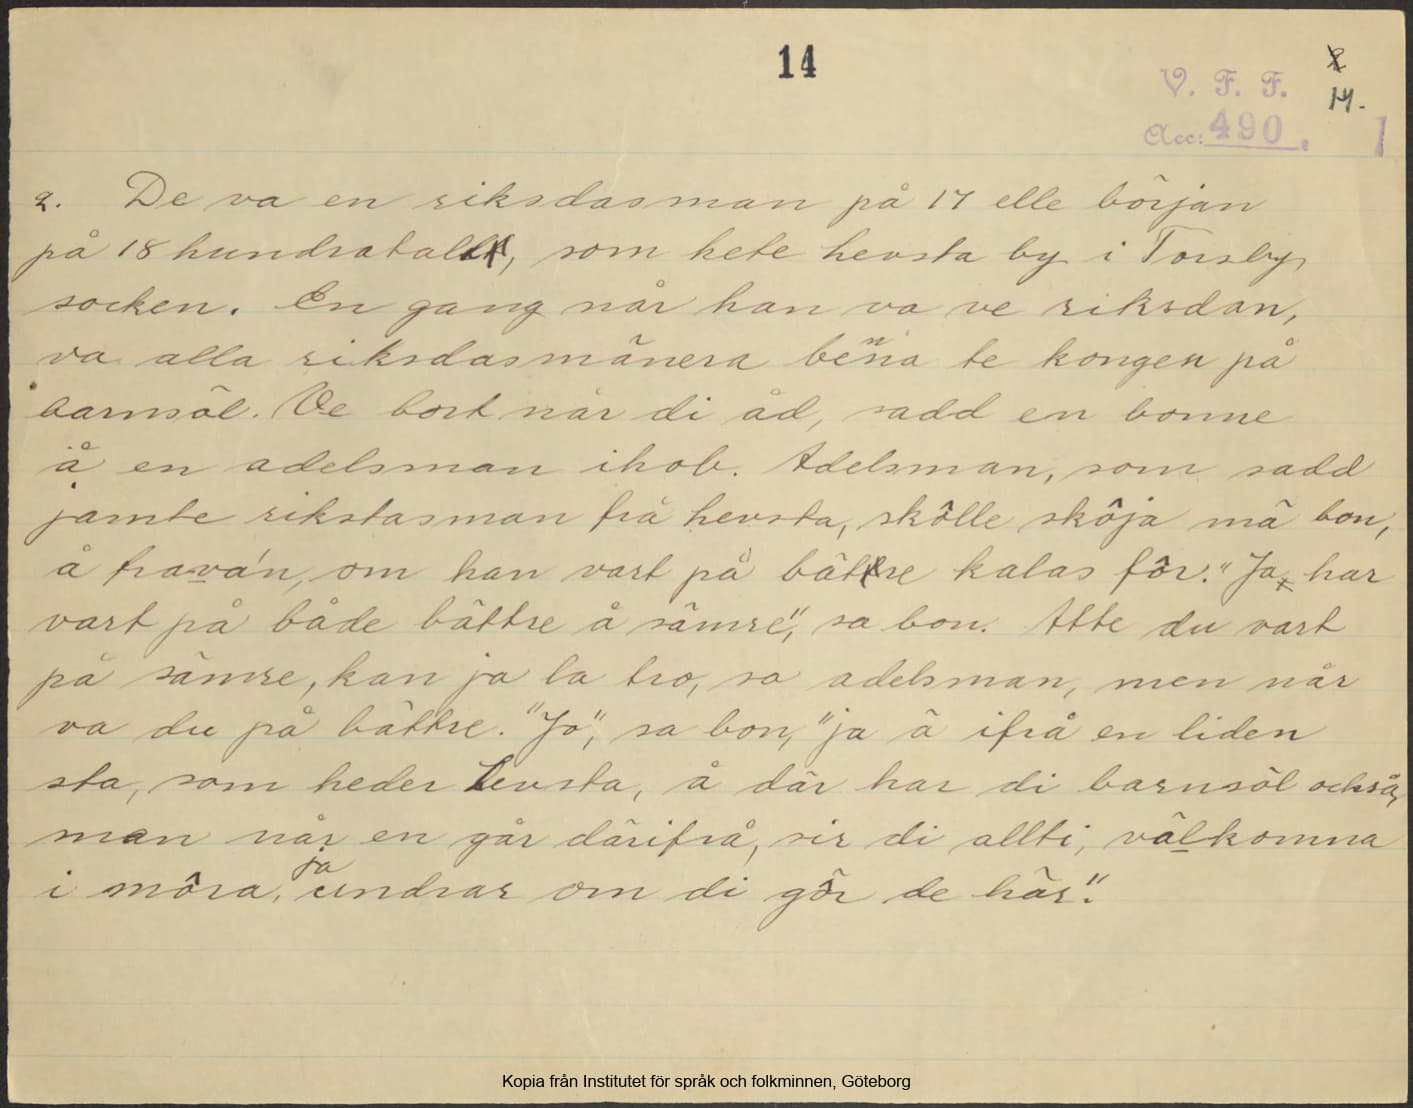 14
V. F. F.
14.
Acc: 490. 1
2. De va en riksdasman på 17 elle början
på 18 hundratall, som hete hevsta by i Torsby
socken. En gang når han va ve riksdan,
va alla riksdasmänera bena te kongen på
barnsöl. Ve bort når di åd, sadd en bonne
å en adelsman ihob. Adelsman, som sadd
jamte rikstasman frå hevsta, skölle sköja mä bon,
å fravá'n, om han vart på bättre kalas för." Ja har
vart på både bättre å sämre", sa bon. Atte du vart
på sämre, kan ja la tro, sa adelsman, men når
va du på bättre. "Jo", sa bon, "ja ä ifrå en liden
sta, som heder hevsta, å där har di barnsöl också,
man når en går därifrå, sir di allti, välkomna
i möra, ja undrar om di gör de här."
Kopia från Institutet för språk och folkminnen, Göteborg